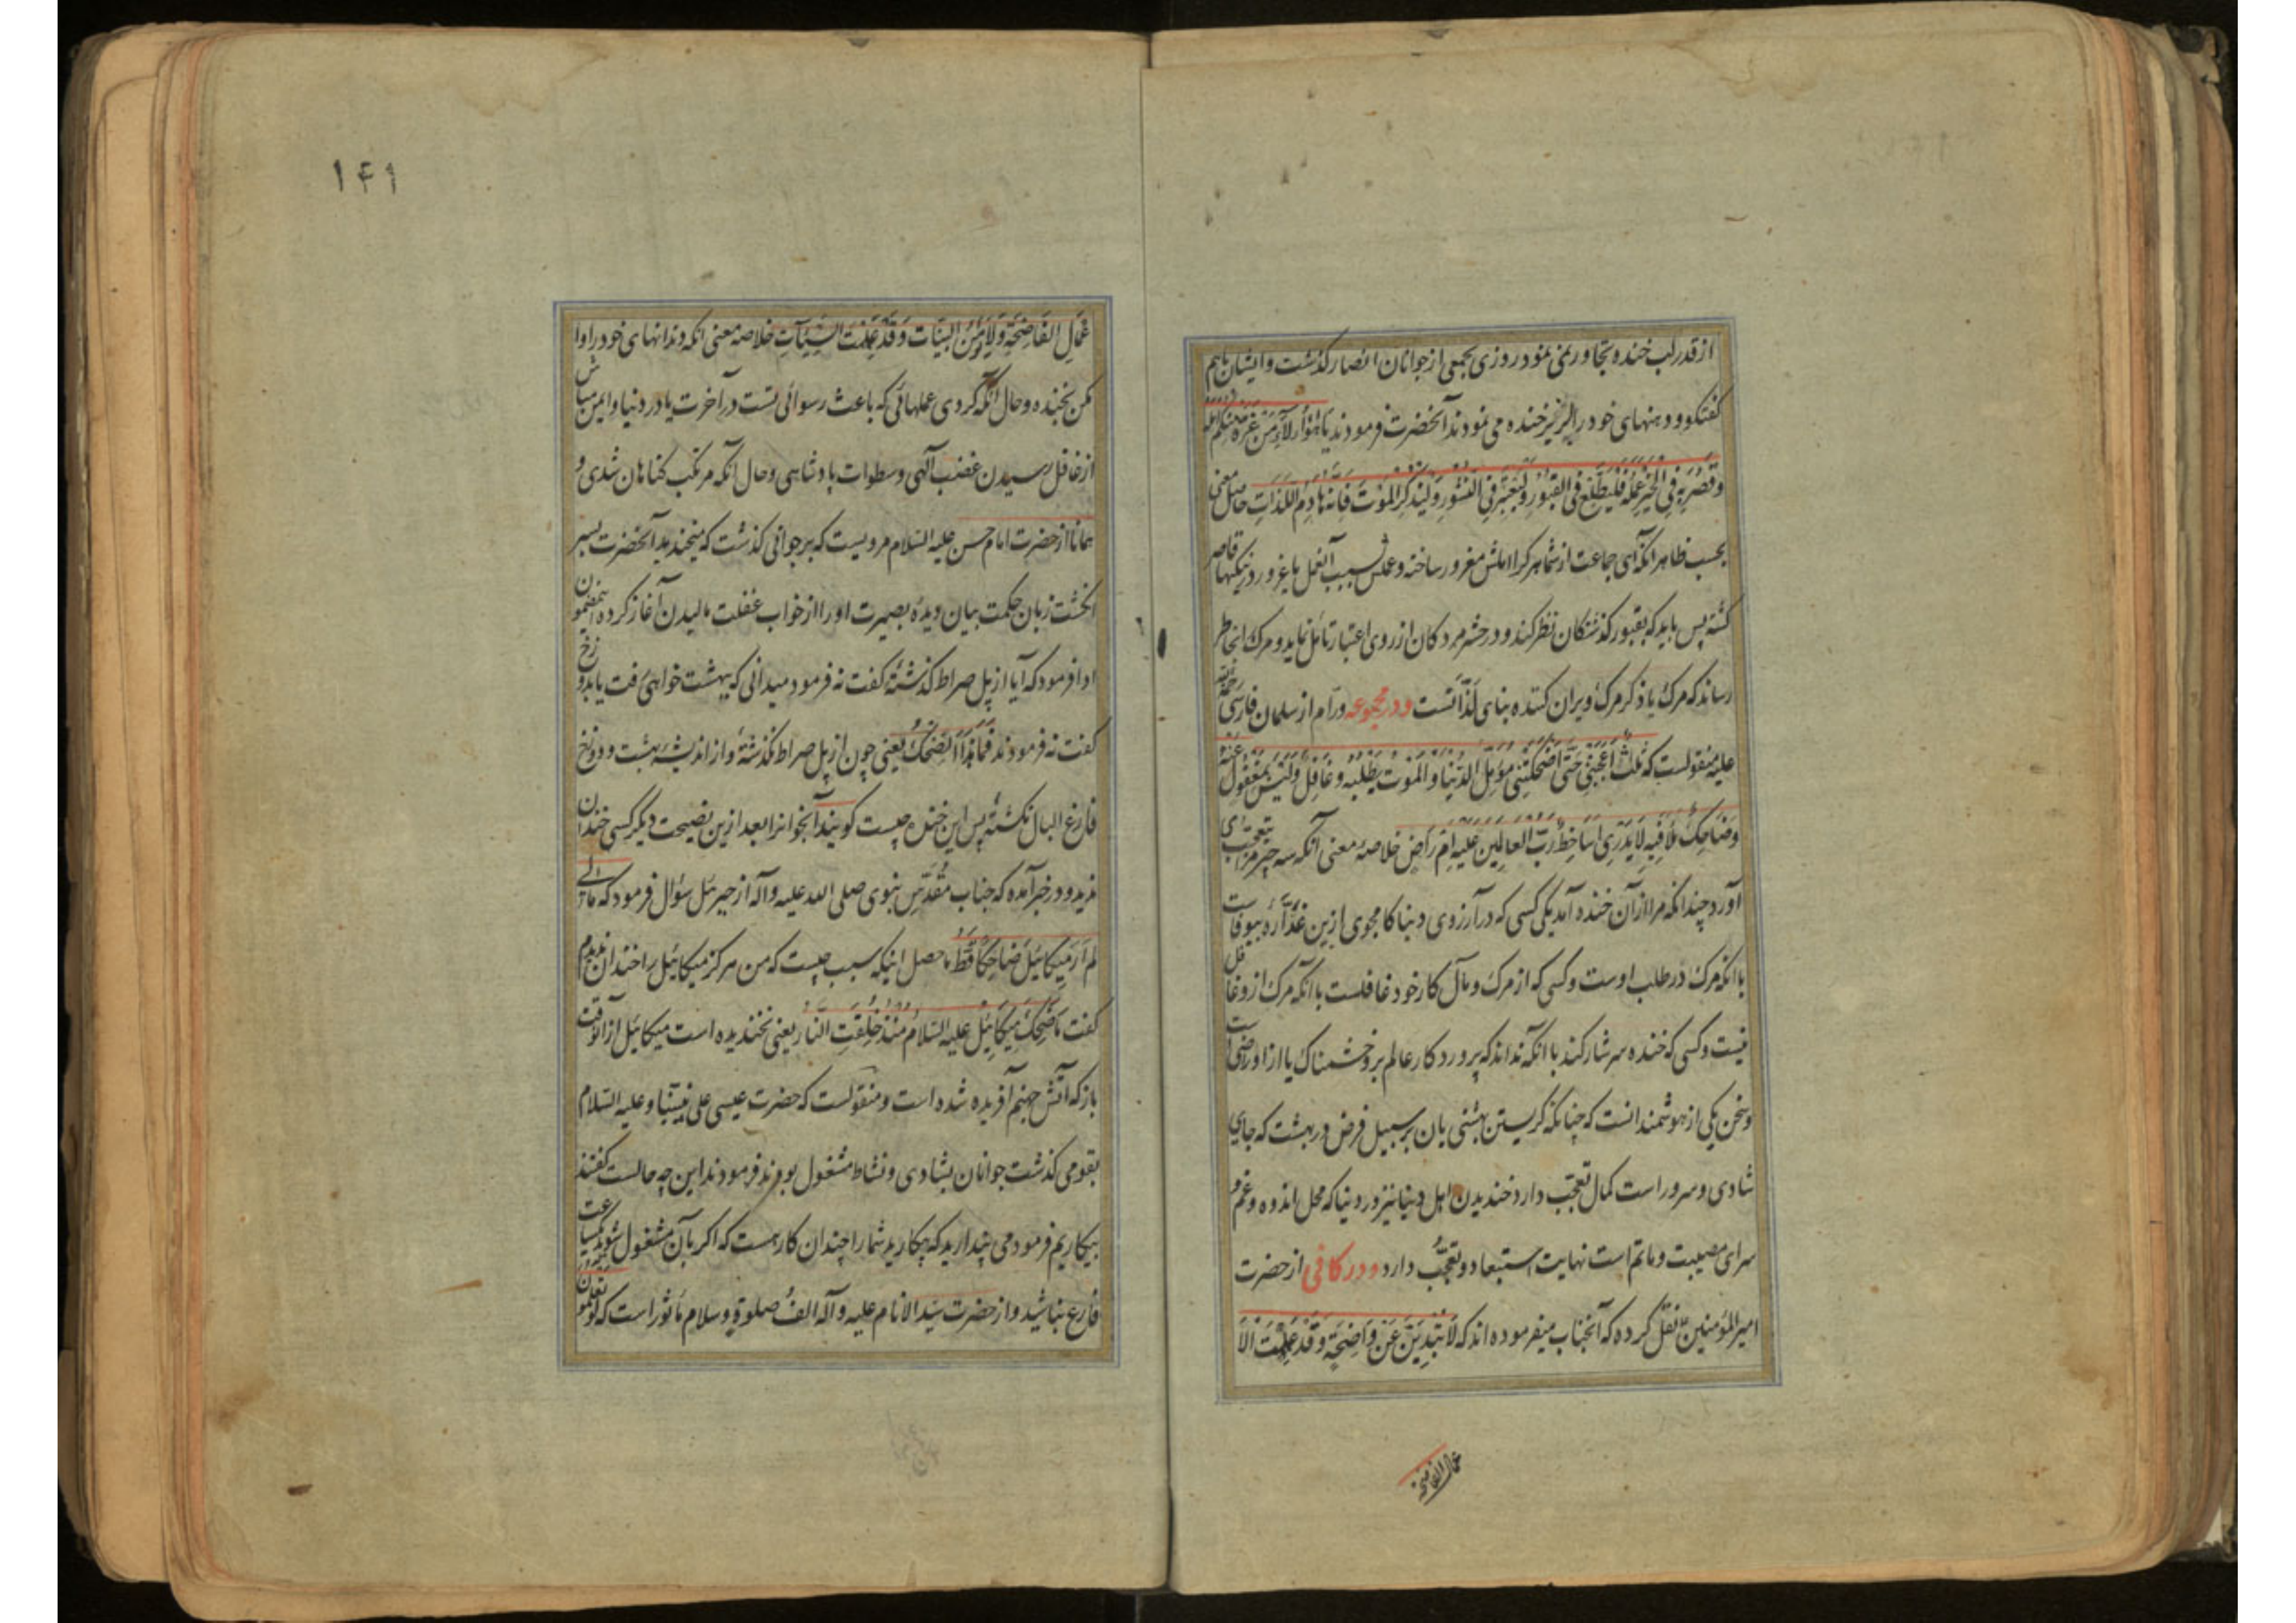 از قدر لب خنده تجاوز نمی نمود روزی بجمعی از جوانان انصار گذشت و ایشان باهم
گفتگو و دهنهای خود را لبریز خنده می نمودند آنحضرت فرمودند یا هٰؤُلَاءِ مَنْ غَرَّهُ مِنْکُمْ اَمَلُهُ
وَقَصُرَ بِهِ فِی الْخَیْرِ عَمَلُهُ فَلْیَطَّلِعْ فِی الْقُبُورِ وَلْیَعْتَبِرْ فِی النُّشُورِ وَلْیَذْکُرِ الْمَوْتَ فَاِنَّهُ هَادِمُ اللَّذَّاتِ حاصل معنی
بحسب ظاهر آنکه ای جماعت از شما هر کرا املش مغرور ساخته و عملش بسبب آن امل یا غرور در نیکیها قاصر
گشته پس باید که بقبور گذشتگان نظر کند و در حشر مردگان از روی اعتبار تأمل نماید و مرگ بخاطر
رساند که مرگ یا ذکر مرگ ویران کننده بنای لذّاتست و در مجموعه ورّام از سلمان فارسی رحمة الله
علیه منقولست که ثَلٰثٌ اَعْجَبَتْنِی حَتّٰی اَضْحَکَتْنِی مُؤَمِّلُ الدُّنْیَا وَالْمَوْتُ یَطْلُبُهُ وَغَافِلٌ وَلَیْسَ بِمَغْفُولٍ عَنْهُ
وَضَاحِکٌ مِلْأَ فِیهِ لَا یَدْرِی اَسَاخِطٌ رَبُّ الْعَالَمِینَ عَلَیْهِ اَمْ رَاضٍ خلاصهٔ معنی آنکه سه چیز مرا بتعجب می
آورد چندانکه مرا از آن خنده آمد یکی کسی که در آرزوی دنیا کامجوی ازین غدّارهٔ بیوفاست
با آنکه مرگ در طلب اوست و کسی که از مرگ و مآل کار خود غافلست با آنکه مرگ ازو غافل
نیست و کسی که خنده سرشار کند با آنکه نداند که پروردگار عالم برو خشمناک یا ازو راضی است
و سخن یکی از هوشمندانست که چنانکه گریستن بهشتیان بر سبیل فرض در بهشت که جای
شادی و سرور است کمال تعجّب دارد خندیدن اهل دنیا نیز در دنیا که محل اندوه و غم و
سرای مصیبت و ماتم است نهایت استبعاد و تعجّب دارد و در کافی از حضرت
امیر المؤمنین ع نقل کرده که آنجناب میفرموده اند که لَا تُبْدِیَنَّ عَنْ وَاضِحَةٍ وَقَدْ عَمِلْتَ الْاَ
عمال الفاضحة
۱۴۱
عْمَالِ الْفَاضِحَةِ وَلَا یَأْمَنُ الْبَیَاتَ وَقَدْ عَمِلْتَ السَّیِّئَاتِ خلاصه معنی آنکه دندانهای خود را وا
مکن بخنده و حال آنکه کردی عملهائی که باعث رسوائی تست در آخرت یا در دنیا و ایمن مباش
از غافل رسیدن غضب آلهی و سطوات پادشاهی و حال آنکه مرتکب گناهان شدی و
همانا از حضرت امام حسن علیه السّلام مرویست که بر جوانی گذشت که میخندید آنحضرت بسر
انگشت زبان حکمت بیان دیدهٔ بصیرت او را از خواب غفلت مالیدن آغاز کرده باینمضمون
ادا فرمود که آیا از پل صراط گذشتهٔ گفت نه فرمود میدانی که ببهشت خواهی رفت یا بدوزخ
گفت نه فرمودند فَمَا هٰذَا الضِّحْکُ یعنی چون از پل صراط نگذشتهٔ و از اندیشهٔ بهشت و دوزخ
فارغ البال نگشتهٔ پس این خنده چیست گویند آنجوانرا بعد ازین نصیحت دیگر کسی خندان
ندید و در خبر آمده که جناب مقدّس نبوی صلی الله علیه و آله از جبرئیل سؤال فرمود که مَالِی
لَمْ اَرَ مِیکَائِیلَ ضَاحِکًا قَطُّ ماحصل اینکه سبب چیست که من هرگز میکائیل را خندان ندیدم
گفت مَا ضَحِکَ مِیکَائِیلُ علیه السّلام مُنْذُ خُلِقَتِ النَّارُ یعنی نخندیده است میکائیل از آنوقت
باز که آتش جهنم آفریده شده است و منقولست که حضرت عیسی علی نبیّنا و علیه السّلام
بقومی گذشت جوانان بشادی و نشاط مشغول بودند فرمودند این چه حالست گفتند
بیکاریم فرمود می پندارید که بیکارید شما را چندان کار هست که اگر بآن مشغول شوید یکساعت
فارغ نباشید و از حضرت سید الانام علیه و آله الف صلوة و سلام مأثور است که لَوْ تَعْلَمُونَ